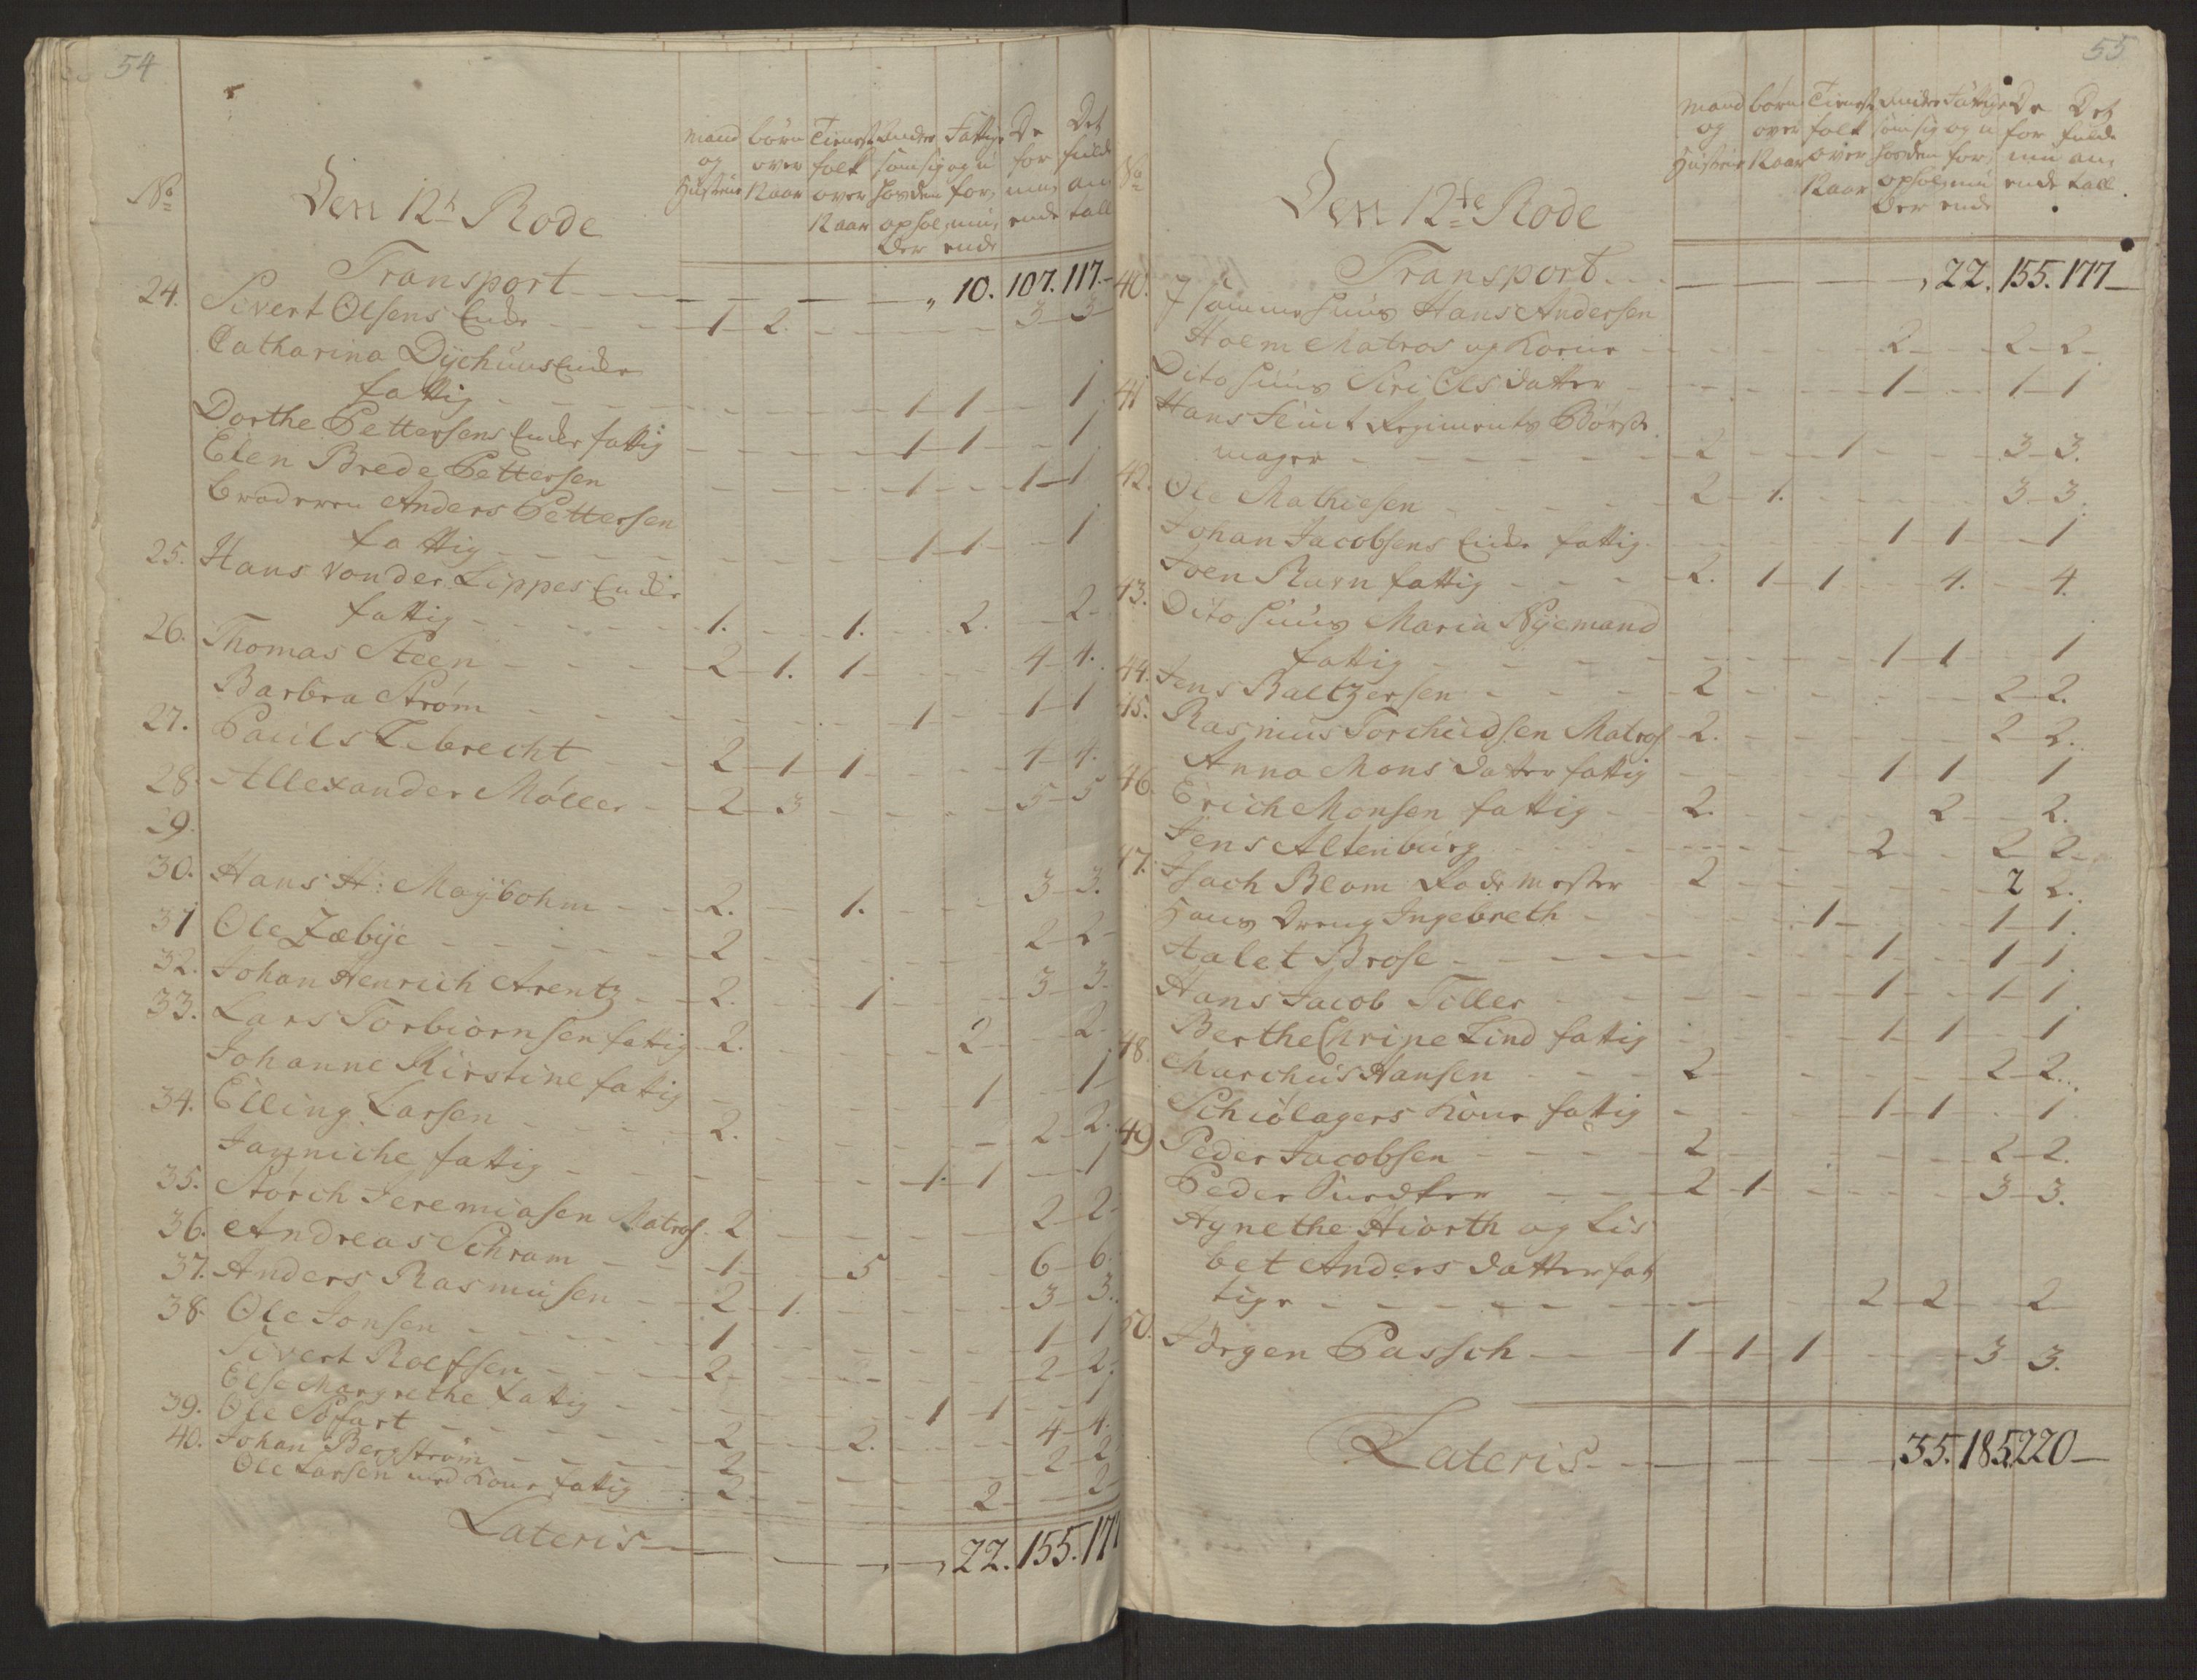 54
No
Den 12te Rode
Mand og Hustrue
børn over 12 aar
Tienestfolk over 12 aar
Andre som sig hos dem opholder
Fattige og uformuende
De formuende
Det fulde antall
Transport - - - - „ 10. 107. 117.-
24. Sivert Olsens Enke - - 1 - 2. - - - - 3 - 3
Catharina Dychuus Enke
fattig - - - - - 1 - 1 - 1
Dorthe Pettersens Enke fattig - - - - 1 - 1 - - 1
Elen Brede Pettersen - - - - 1 - - 1 - 1
broderen Anders Pettersen
fattig - - - - 1 - 1 - - 1
25. Hans Vonder Lippes Enke
fattig - - - 1. - - 1. - - 2. - - 2 -
26. Thomas Steen - - - 2 - 1. 1 - - - 4 - 4.
Barbra Strøm - - - - - - 1 - - 1 - 1
27. Pauls Lebrecht - - 2 - 1 - 1 - - - 4 - 4.
28. Allexander Møller - - 2 - 3 - - - - 5 - 5
29.
30. Hans H: Maÿbohm - - 2. - 1. - - - 3 - 3.
31 Ole Zæbÿe - - - - 2 - - - - 2 - 2 -
32. Johan Henrich Arentz - - 2. - - 1 - - - 3 - 3.
33. Lars Torbiørnsen fattig - 2. - - - - 2 - - 2 -
Johanne Kirstine fattig - - - - - 1 - - 1 -
34. Elling Larsen - - - - 2. - - - - - 2 - 2.
Janniche fattig - - - - - - 1. - 1 - - 1
35. Størch Jeremiasen Matros. 2 - - - - - 2 - 2 -
36. Andreas Schram - - - 1 - - 5 - - - 6 - 6.
37. Anders Rasmusen - - 2 - 1. - - - - 3 - 3.
38. Ole Jonsen - - - - 1 - - - - - 1 - 1
Sivert Rolfsen - - - 2 - - - - - 2 - 2.
Else Margrethe fattig - - - - - 1 - 1 - - 1
39. Ole Sofart - - - - 2 - - 2. - - - 4 - 4.
40. Johan Bergstrøm - - - 2 - - - - - 2 - 2
Ole Larsen med Kone fattig - - 2 - - - - 2 - - 2 -
Lateris - - - - - „ 22. 155. 177
55
No
Den 12te Rode
Mand og Hustrue
børn over 12 aar
Tienest folk over 12 aar
Andre som sig hos dem opholder
Fattige og uformuende
De formuende
Det fulde antall.
Transport. - - - - - „ 22. 155. 177 -
40. I samme Huus Hans Andersen
Holm Matros og Kone - - - - 2 - - 2 - 2 -
Dito Huus Siri Olsdatter - - - - 1 - - 1 - 1
41 Hans Feint Regiments Børse
mager - - - - - 2 - - 1 - - - 3 - 3.
42. Ole Mathiesen - - - - 2 - 1. - - - - 3 - 3.
Johan Jacobsens Enke fattig. - - - - 1 - 1 - - 1
43. Joen Ravn fattig - - - - 2. 1 - 1 - 4. - 4.
Dito Huus Maria Nÿemand
fattig - - - - - - - 1 - 1 - 1
44. Jens Baltzersen - - - - 2 - - - - - 2 - 2.
45. Rasmus Torchildsen Matros - 2. - - - - 2 - 2.
Anna Mons datter fattig - - - - 1 - 1 - 1
46. Erich Monsen fattig - - 2. - - - - 2 - - 2.
Jens Altenburg - - - - - - - 2 - - 2 - 2 -
47. Isach Blom Rode Mester - 2 - - - - - 2 2.
Hans dreng Ingebreth - - - - 1 - - - 1 - 1.
Halet Brose - - - - - - - 1 - - 1 - 1.
Hans Jacob Tiller - - - - - - 1 - - 1 - 1.
Berthe Chrine Lind fattig - - - - 1 - 1 - - 1
48. Marchus Hansen - - - - 2 - - - - 2 - 2..
Schiølagers Kone fattig - - - - 1 - 1 - - 1.
49 Peder Jacobsen - - - - 2 - - - - - 2 - 2.
Peder - - - 2 - 1 - - - - 3 - 3.
Agnethe Hiorth og Lis
bet Anders datter fat
tige - - - - - - - - - 2 - 2 - - 2
50. Jørgen Passch - - - 1 - 1 - 1 - - - 3 - 3.
Lateris - - - - - „ 35. 185. 220 -